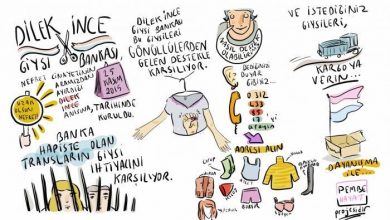 DİLEK İNCE
GİYSİ BANKASI,
NEFRET CİNAYETİNİN
ARAMIZDAN
AYIRDIĞI
DİLEK
İNCE
ANISINA,
25
KASIM
2015
TARİHİNDE
KURULDU.
UZAK
OLSUN
NEFRET!
BANKA
HAPİSTE OLAN
TRANSLARIN GİYSİ
İHTİYACINI
KARŞILIYOR.
DİLEK İNCE
GİYSİ BANKASI
BU GİYSİLERİ
GÖNÜLLÜLERDEN
GELEN DESTEKLE
KARŞILIYOR.
NASIL DESTEK
OLABİLİRİM?
DEDİĞİNİZİ
DUYAR
GİBİYİZ.
0 312
433
85 17
ADRESİ ALIN
VE İSTEDİĞİNİZ
GİYSİLERİ,
KARGOYA
VERİN...
DAYANIŞMA
İLE...
PEMBE
HAYAT
projesidir